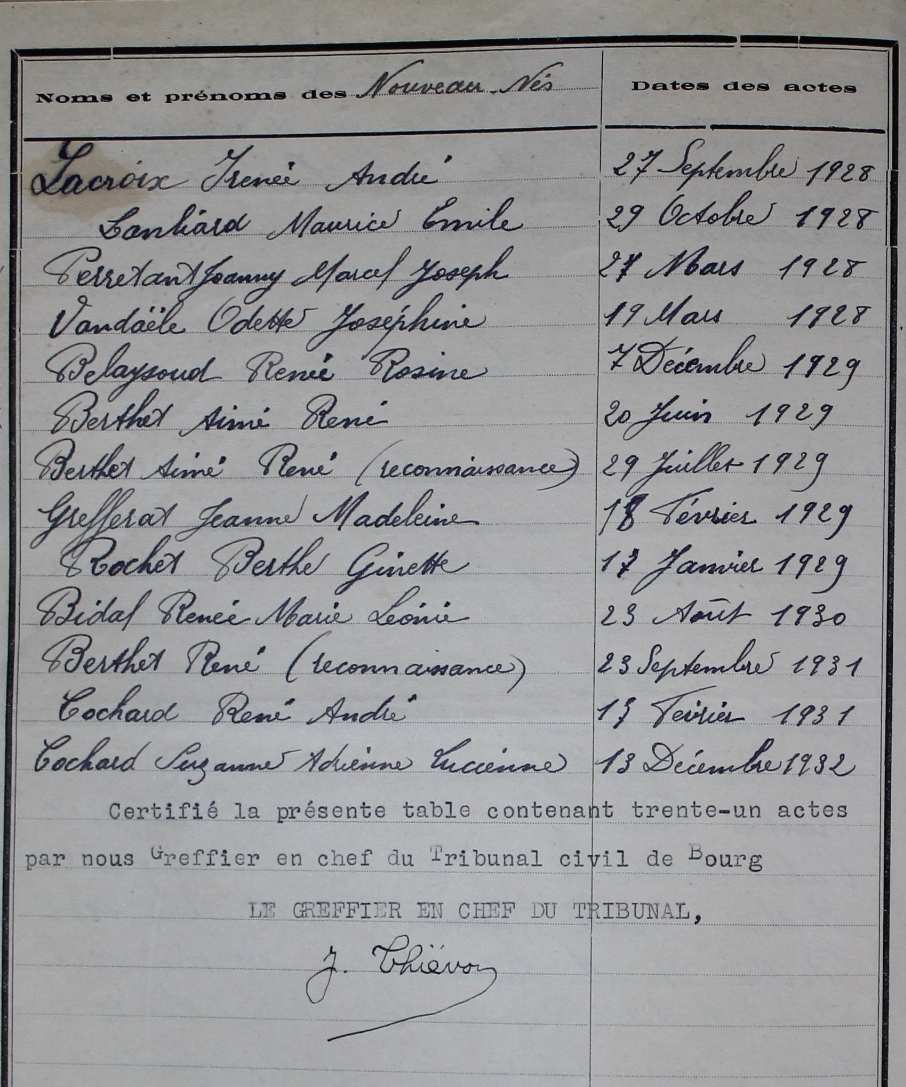 Noms et prénoms des Nouveau-Nés Dates des actes
Lacroix Irenée André 27 Septembre 1928
Maurice Emile 29 Octobre 1928
Perretant Joanny Marcel Joseph 27 Mars 1928
Vandaële Odette Joséphine 19 Mars 1928
Belaysoud Renée Rosine 7 Décembre 1929
Berthet Aimé René 20 Juin 1929
Berthet Aimé René (reconnaissance) 29 Juillet 1929
Grefferat Jeanne Madeleine 18 Février 1929
Rochet Berthe Ginette 17 Janvier 1929
Bidal Renée Marie Léonie 23 Août 1930
Berthet René (reconnaissance) 23 Septembre 1931
Cochard René André Février 1931
Cochard Suzanne Adrienne Lucienne 13 Décembre 1932
Certifié la présente table contenant trente-un actes
par nous Greffier en chef du Tribunal civil de Bourg
LE GREFFIER EN CHEF DU TRIBUNAL,
J. Thiévon